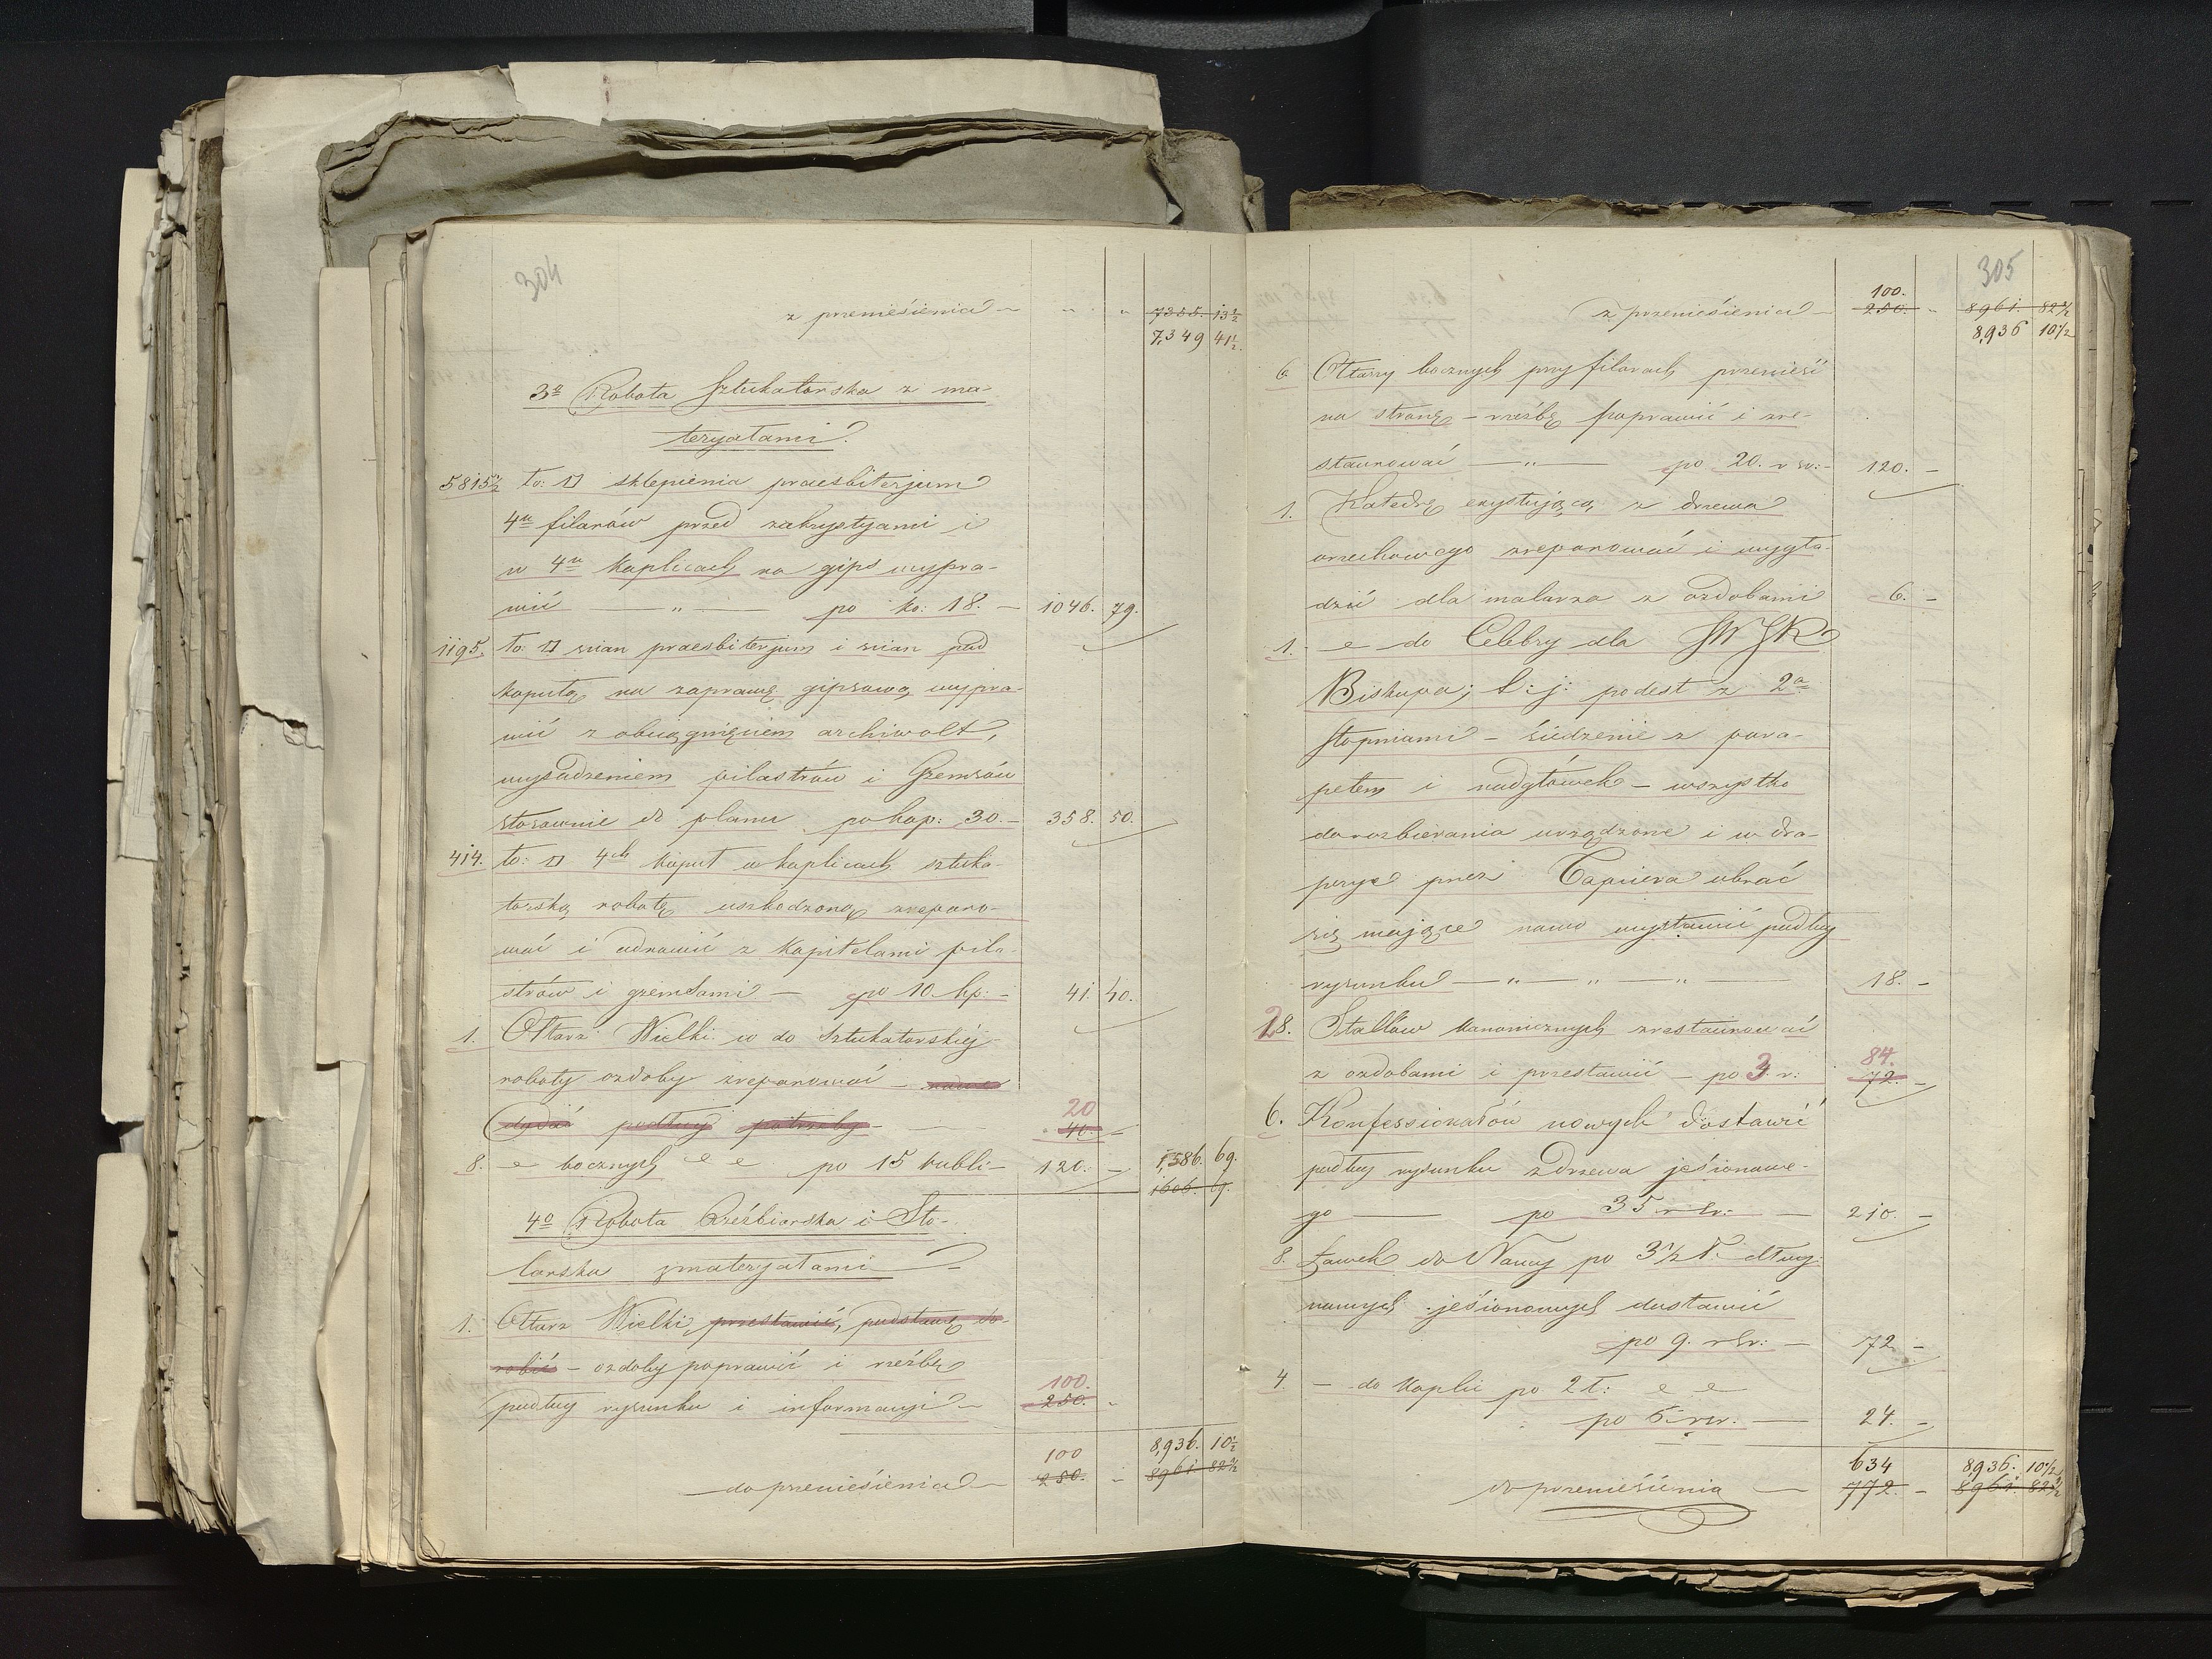 304
z przeniesienia — " " 7355. 13½
7,349 41½.
3o Robota Sztukatorska z ma-
teryałami.
5815½ to: □ sklepienia praesbiterjum
4ch filarów przed zakrystyami i
w 4ch kaplicach na gips wypra-
wić — " — po ko: 18. — 1046. 79.
1195. to: □ scian praesbiterjum i scian pod
kopułą na zaprawę gipsową wypra-
wić z obciągnięciem archiwolt,
wysadzeniem pilastrów i Gzemsów
stosownie do planu po kop: 30. — 358. 50.
414. to: □ 4ch kopuł w kaplicach sztuka-
torską robotę uszkodzoną zreparo-
wać i odnowić z kapitelami pila-
strów i gzemsami — po 10 kp: — 41. 40.
1. Ołtarz Wielki co do Sztukatorskiéj
roboty ozdoby zreparować — nowe
dodać podług potrzeby — 20
40. —
8. " bocznych " " po 15 rubli — 120. — 1,586. 69.
1606. 69.
4o Robota Rzeźbiarska i Sto-
larska z materyałami
1. Ołtarz Wielki przestawić, podstawę do-
robić — ozdoby poprawić i rzeźbę
podług rysunku i informacyi — 100.
250. "
do przeniesienia — 100 8,936. 10½
250. " 8961. 82½
305
z przeniesienia — 100.
250. " 8961. 82½
8,936 10½
6 Ołtarzy bocznych przy filarach przenieść
na stronę — rzeźbę poprawić i zre-
staurować — " — po 20. rsr: — 120. —
1. Katedrę exystującą z drzewa
orzechowego zreparować i wygła-
dzić dla malarza z ozdobami 6. —
1. " do Celebry dla JW JK
Biskupa; t: j: podest z 2a
stopniami — siedzenie z para-
petem i nadgłówek — wszystko
do rozbierania urządzone i w dra-
perye przez Tapicera ubrać
się mające nowo wystawić podług
rysunku — " — " — " — 18. —
28. Stallów kanonicznych zrestaurować
z ozdobami i przestawić — po 3. r: 84.
72. —
6. Konfessionałów nowych dostawić
podług rysunku z drzewa jesionowe-
go — po 35 rsr: — 210. —
8. Ławek do Nawy po 3½ ł. dług:
nowych jesionowych dostawić
po 9. rsr: — 72 —
4. — do kaplic po 2 ł: " "
po 6. rsr: — 24. —
do przeniesienia — 634 8,936. 10½
772. — 8961. 82½